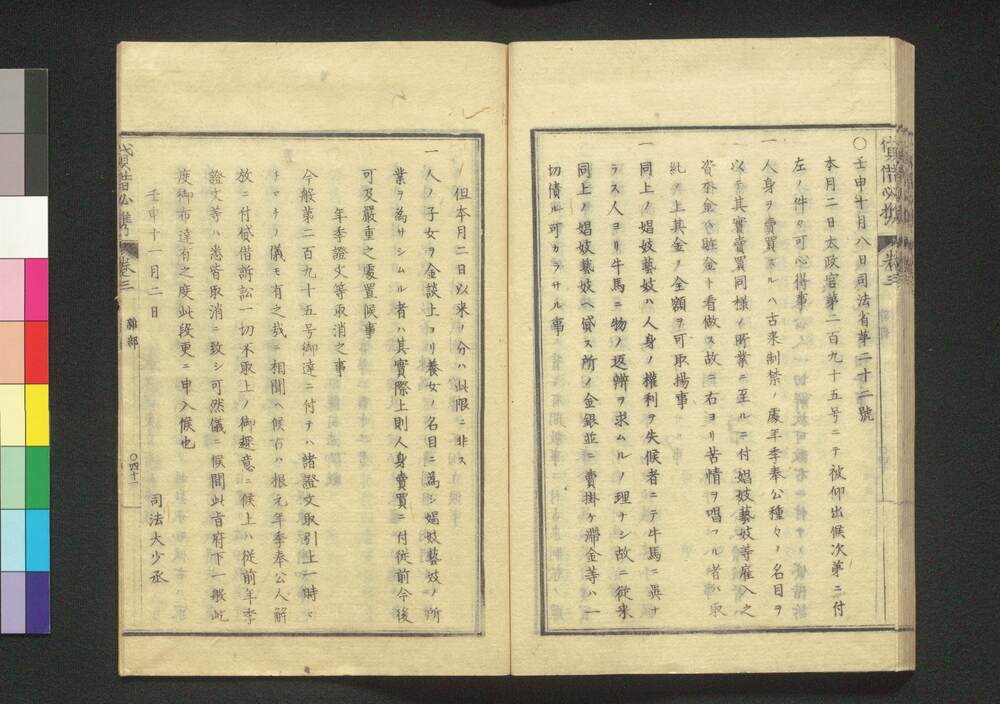 貸借必携 卷三
〇壬申十月八日司法省第二十二號
本月二日太政官第二百九十五号ニテ被仰出候次第ニ付
左ノ件々可心得事
一人身ヲ賣買スルハ古來制禁ノ處年季奉公種々ノ名目ヲ
以テ其實賣買同様ノ所業ニ至ルニ付娼妓藝妓等雇入之
資本金ハ賍金ト看做ス故ニ右ヨリ苦情ヲ唱フル者ハ取
糺ノ上其金ノ全額ヲ可取揚事
一同上ノ娼妓藝妓ハ人身ノ權利ヲ失候者ニテ牛馬ニ異ナ
ラス人ヨリ牛馬ニ物ノ返辨ヲ求ムルノ理ナシ故ニ從来
同上ノ娼妓藝妓ヘ貸ス所ノ金銀並ニ賣掛ケ滯金等ハ一
切債ル可カラサル事
但本月二日以来ノ分ハ此限ニ非ス
一人ノ子女ヲ金談上ヨリ養女ノ名目ニ為シ娼妓藝妓ノ所
業ヲ為サシムル者ハ其實際上則人身賣買ニ付従前今後
可及嚴重之處置候事
年季證文等取消之事
今般第二百九十五号御達ニ付テハ諸證文取引上一時ニ
トマトノ儀モ有之哉ニ相聞ヘ候右ハ根元年季奉公人解
放ニ付貸借訴訟一切不取上ノ御趣意ニ候上ハ従前年季
證文等ハ悉皆取消ニ致シ可然儀ニ候間此旨府下一般此
度御布達有之度此段更ニ申入候也
壬申十一月二日
司法大少丞
貸借必携 卷三 雜部 〇四十二